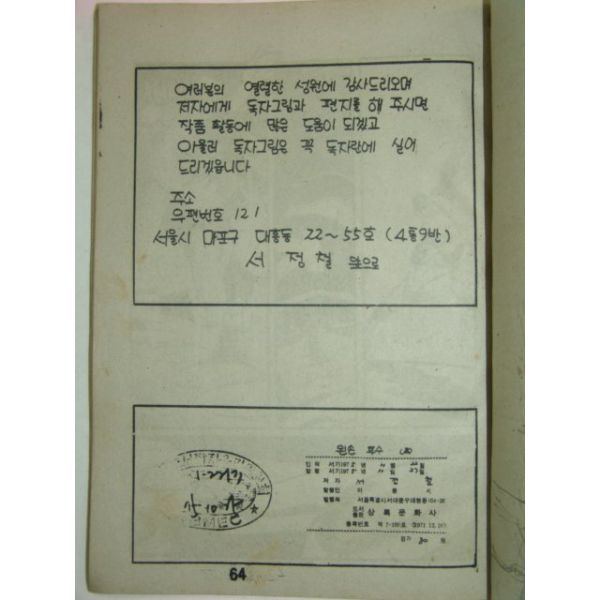 여러분의 열렬한 성원에 감사드리오며
저자에게 독자그림과 편지를 해 주시면
작품 활동에 많은 도움이 되겠고
아울러 독자그림은 꼭 독자란에 실어
드리겠읍니다
주소
우편번호 121
서울시 마포구 대흥동 22~55호 (4통9반)
서 정 철 앞으로
왼손 포수
인쇄 서기197 년 월 일
발행 서기197 년 월 일
저 자 서 정 철
발행인 이
발행처 서울특별시서대문구대현동104-36
도서출판 상록문화사
등록번호 제 7-100호 (1971. 12.
정가 80 원
64